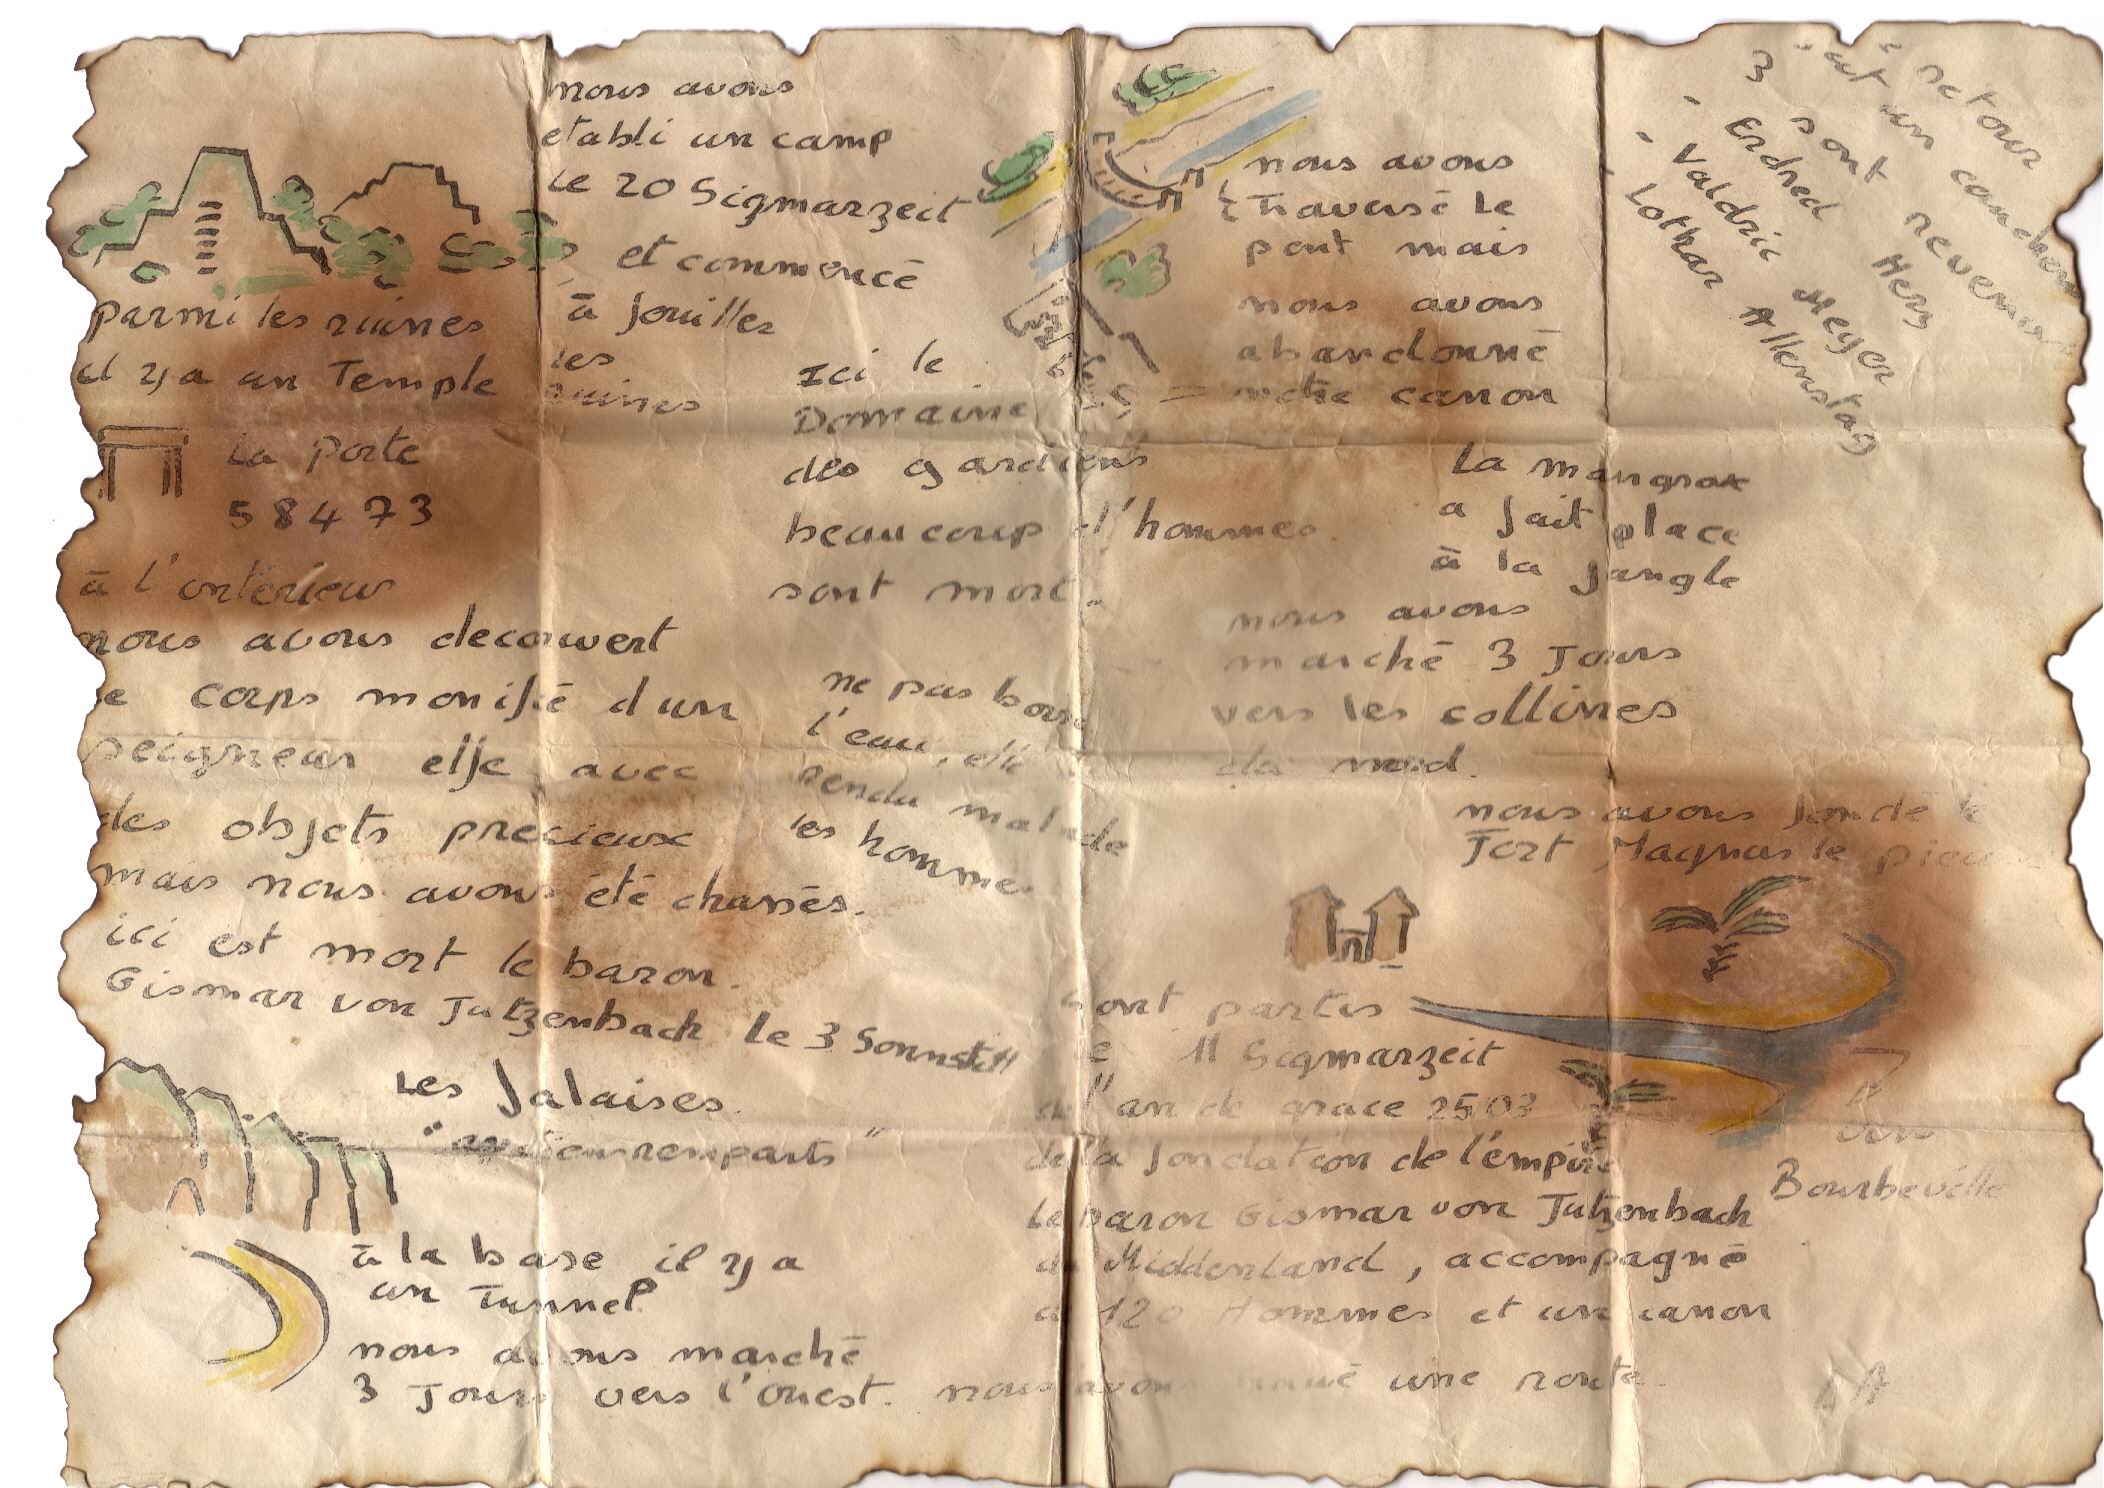 nous avons
etabli un camp
le 20 Sigmarzeit
et commencé
à fouiller
les
ruines
parmi les ruines
il y a un Temple
La Porte
58473
à l'interieur
nous avons decouvert
le corps monifié d'un
seigneur elfe avec
des objets precieux
mais nous avons été chassés.
ici est mort le baron.
Gismar von Jutzenbach le 3 Sonnstill
Les falaises.
"anciens remparts"
à la base il y a
un Tunnel
nous avons marché
3 Jours vers l'ouest. nous avons une route.
Ici le
Domaine
des gardiens
beaucoup d'hommes
sont mort.
ne pas boire
l'eau, elle
rendu malade
les hommes
nous avons
Traversé le
pont mais
nous avons
abandonné
notre canon
La mangrove
a fait place
à la jungle
nous avons
marché 3 Jours
vers les collines
du nord.
nous avons fondé le
Fort Magnus le pieux
sont partis
le 11 Sigmarzeit
de l'an de grace 2503
de la fondation de l'empire
Le baron Gismar von Jutzenbach
du Middenland, accompagné
de 120 Hommes et un canon
Bourbeville
retour
un cauchemar
3 sont revenus
- Erdred Herz
- Valdric Meyer
- Lothar Allenstag